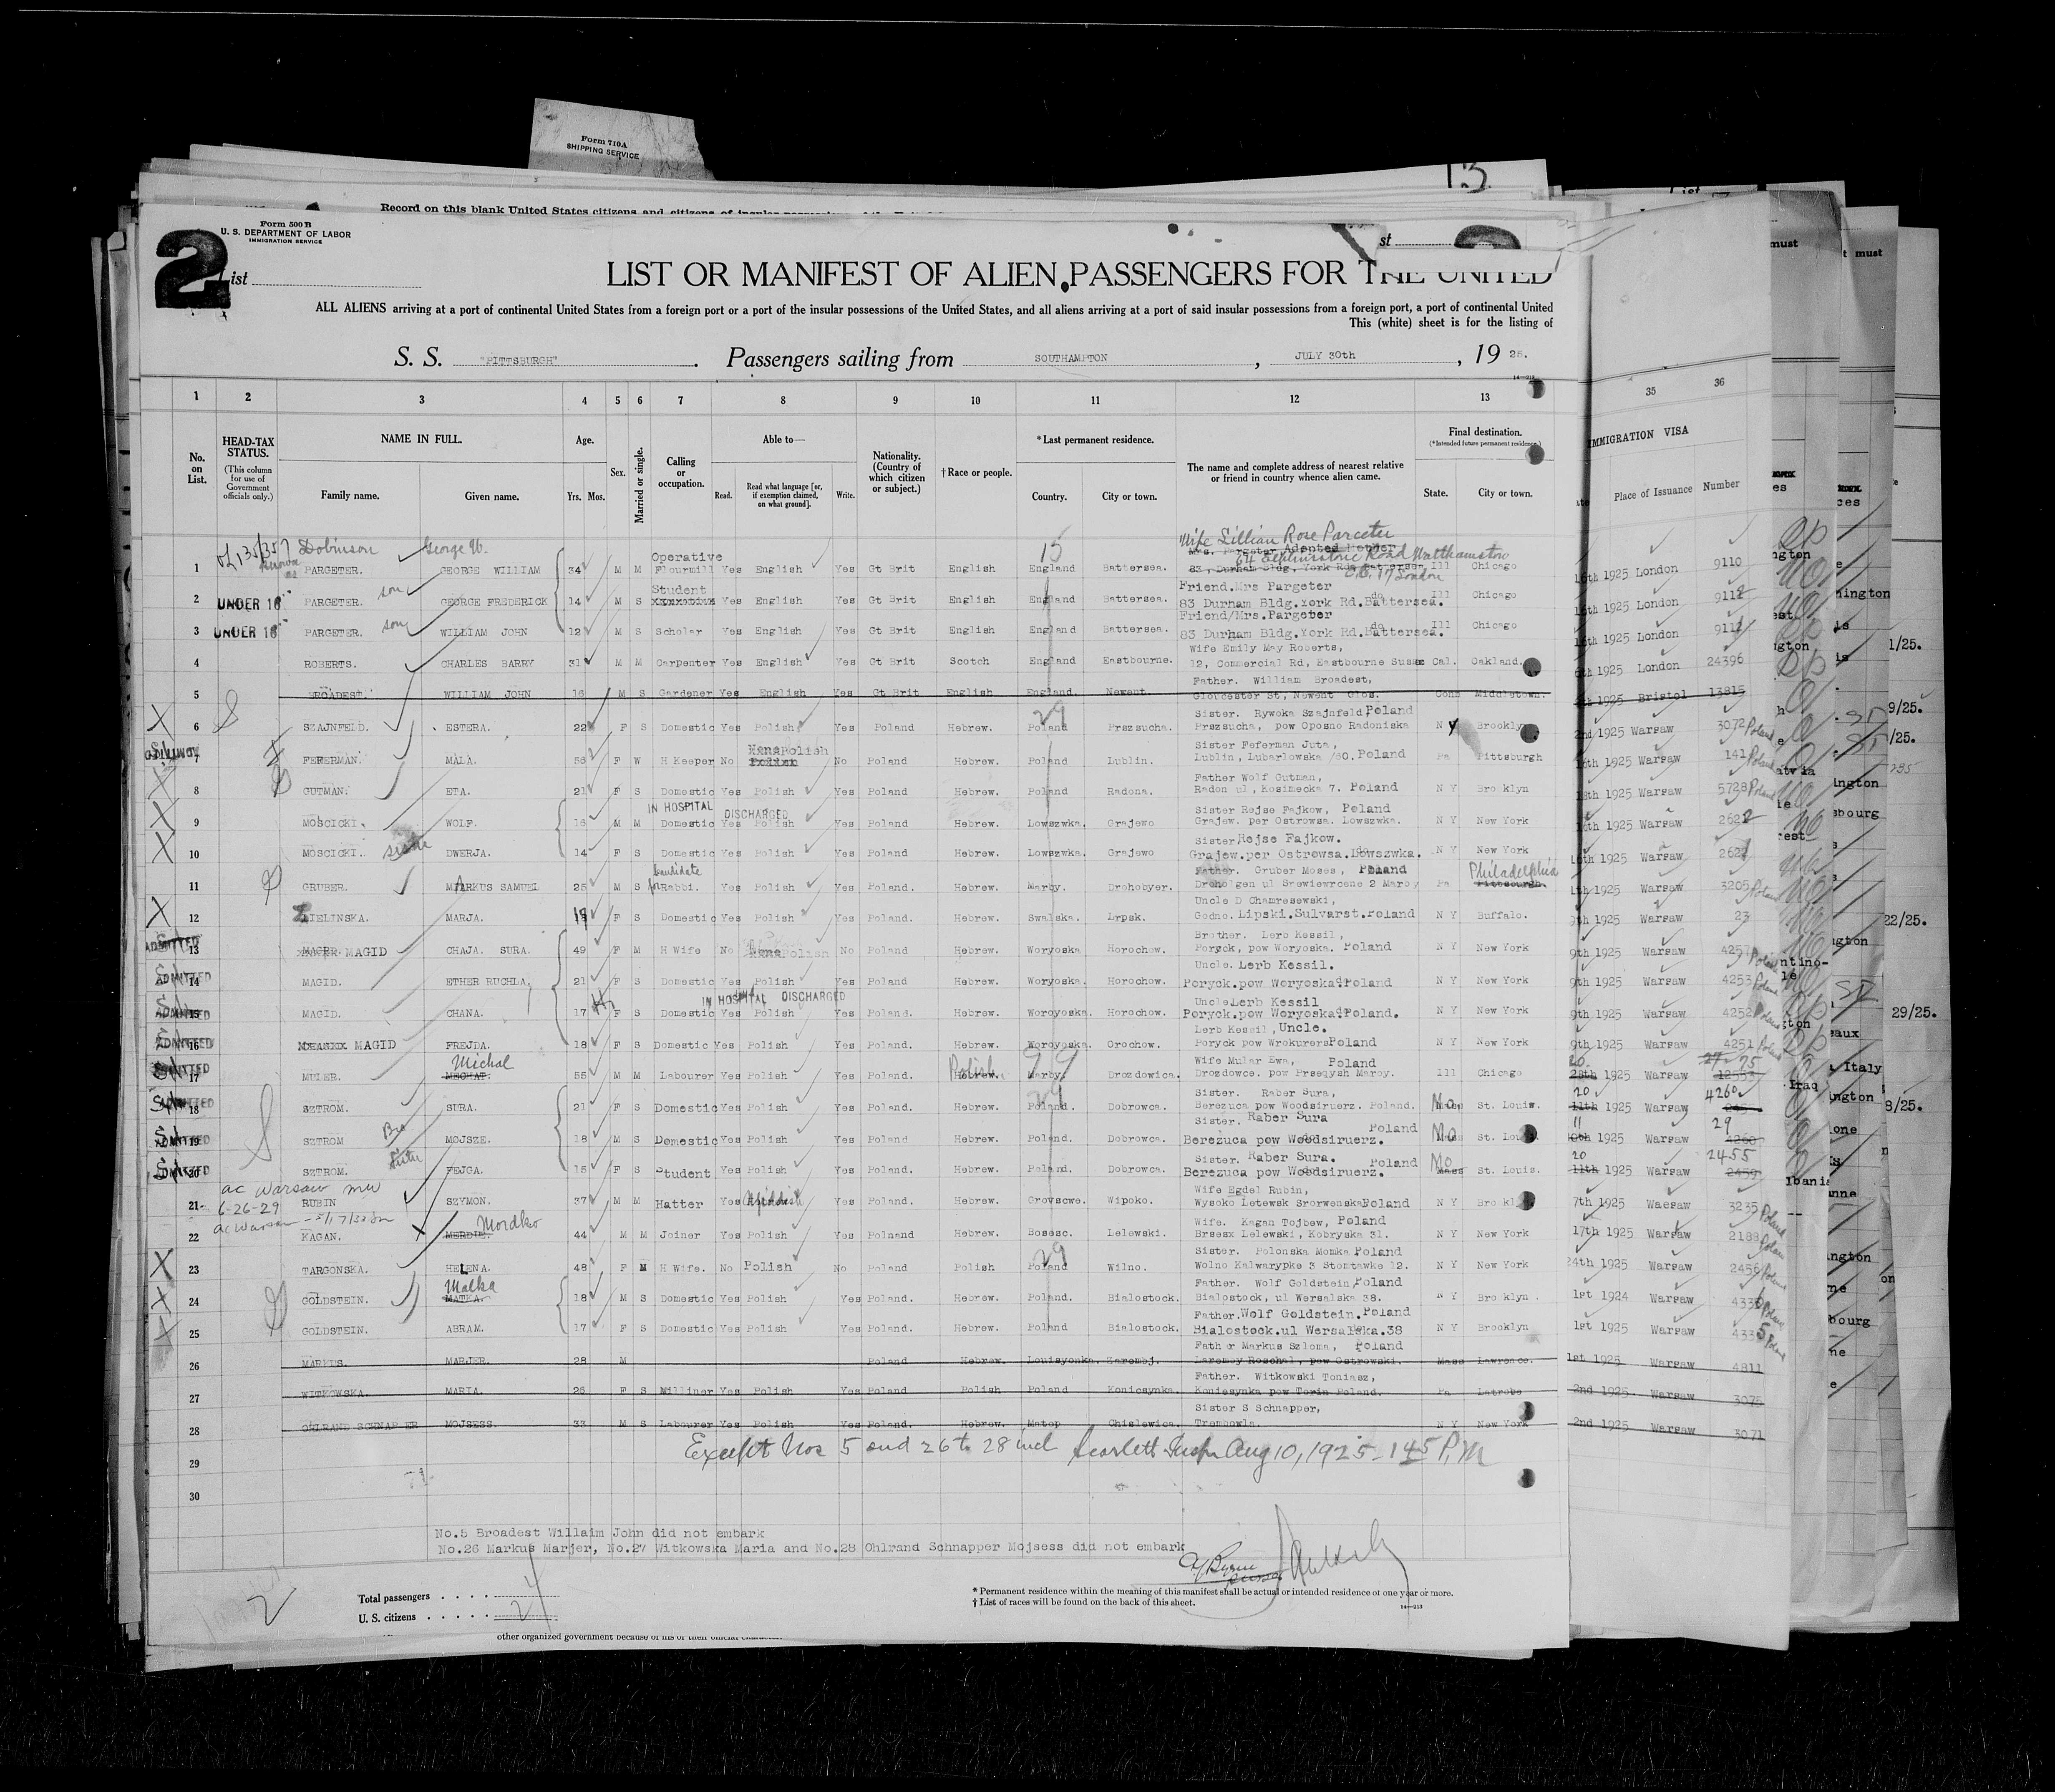 Form 710A
SHIPPING SERVICE
13
Record on this blank United States citizens and citizens of insular
Form 500 B
U. S. DEPARTMENT OF LABOR
IMMIGRATION SERVICE
2
List
st
LIST OR MANIFEST OF ALIEN PASSENGERS FOR THE UNITED
ALL ALIENS arriving at a port of continental United States from a foreign port or a port of the insular possessions of the United States, and all aliens arriving at a port of said insular possessions from a foreign port, a port of continental United
This (white) sheet is for the listing of
S. S. "PITTSBURGH". Passengers sailing from SOUTHAMPTON, JULY 30th, 19 25.
1 2 3 4 5 6 7 8 9 10 11 12 13 35 36
No. on List.
HEAD-TAX STATUS. (This column for use of Government officials only.)
NAME IN FULL. Family name. Given name.
Age. Yrs. Mos.
Sex.
Married or single.
Calling or occupation.
Able to— Read. Read what language [or, if exemption claimed, on what ground]. Write.
Nationality. (Country of which citizen or subject.)
† Race or people.
* Last permanent residence. Country. City or town.
The name and complete address of nearest relative or friend in country whence alien came.
Final destination. (*Intended future permanent residence.) State. City or town.
IMMIGRATION VISA Place of Issuance Number
Dobinson George W. 15 Wife Lillian Rose Pargeter
1 known as PARGETER. GEORGE WILLIAM 34 M M Operative Flourmill Yes English Yes Gt Brit English England Battersea. 83, Durham Bldg, York Rd, Battersea Ill Chicago 16th 1925 London 9110
2 UNDER 16 PARGETER. son GEORGE FREDERICK 14 M S Student Yes English Yes Gt Brit English England Battersea. Friend.Mrs Pargeter 83 Durham Bldg.York Rd.Battersea. Ill Chicago 16th 1925 London 9112
3 UNDER 16 PARGETER. son WILLIAM JOHN 12 M S Scholar Yes English Yes Gt Brit English England Battersea. Friend/Mrs.Pargeter 83 Durham Bldg.York Rd.Battersea. Ill Chicago 16th 1925 London 9111
4 ROBERTS. CHARLES BARRY 31 M M Carpenter Yes English Yes Gt Brit Scotch England Eastbourne. Wife Emily May Roberts, 12, Commercial Rd, Eastbourne Susse Cal. Oakland. 1925 London 24396
5 BROADEST. WILLIAM JOHN 16 M S Gardener Yes English Yes Gt Brit English England. Newent. Father. William Broadest, Gloucester St, Newent Glos. Conn Middletown. 1925 Bristol 13815
X 6 SZAJNFELD. ESTERA. 22 F S Domestic Yes Polish Yes Poland Hebrew. Poland Przszucha. Sister. Rywoka Szajnfeld, Poland Przszucha, pow Oposno Radoniska N Y Brooklyn 2nd 1925 Warsaw 3072 Poland
7 FERERMAN. MALA. 56 F W H Keeper No Polish No Poland Hebrew. Poland Lublin. Sister Feferman Juta, Lublin, Lubarlowska /60. Poland Pa Pittsburgh 16th 1925 Warsaw 141 Poland
X 8 GUTMAN. ETA. 21 F S Domestic Yes Polish Yes Poland Hebrew. Poland Radona. Father Wolf Gutman, Radon ul, Kosimecka 7. Poland N Y Brooklyn 18th 1925 Warsaw 5728 Poland
IN HOSPITAL DISCHARGED
X 9 MOSCICKI. WOLF. 16 M M Domestic Yes Polish Yes Poland Hebrew. Lowszwka. Grajewo Sister Rejse Fajkow, Poland Grajew. per Ostrowsa. Lowszwka. N Y New York 16th 1925 Warsaw 2622
X 10 MOSCICKI. sister DWERJA. 14 F S Domestic Yes Polish Yes Poland Hebrew. Lowszwka. Grajewo Sister Rejse Fajkow. Grajew.per Ostrowsa.Lowszwka. N Y New York 16th 1925 Warsaw 262
11 GRUBER. MARKUS SAMUEL 25 M S candidate for Rabbi. Yes Polish Yes Poland. Hebrew. Marby. Drohobyer. Father. Gruber Moses, Poland Droholgen ul Srewiewrcene 2 Maroy Pa Pittsburgh. Philadelphia 1925 Warsaw 3205 Poland
X 12 ZIELINSKA. MARJA. 19 F S Domestic Yes Polish Yes Poland. Hebrew. Swalska. Lrpsk. Uncle D Chamresewski, Godno. Lipski.Sulvarst.Poland N Y Buffalo. 9th 1925 Warsaw 23
ADMITTED 13 MAGID CHAJA. SURA. 49 F M H Wife No Polish No Poland Hebrew. Woryoska Horochow. Brother. Lerb Kessil, Poryck, pow Woryoska. Poland N Y New York 9th 1925 Warsaw 4257 Poland
ADMITTED 14 MAGID. ETHER RUCHLA, 21 F S Domestic Yes Polish Yes Poland Hebrew. Woryoska. Horochow. Uncle. Lerb Kessil. Poryck.pow Woryoska Poland N Y New York 9th 1925 Warsaw 4253 Poland
IN HOSPITAL DISCHARGED
ADMITTED 15 MAGID. CHANA. 17 F S Domestic Yes Polish Yes Poland Hebrew. Woroyoska. Horochow. Uncle Lerb Kessil Poryck.pow Woryoska Poland. N Y New York 9th 1925 Warsaw 4252 Poland
ADMITTED 16 MAGID FREJDA. 18 F S Domestic Yes Polish Yes Poland. Hebrew. Woroyoska. Orochow. Lerb Kessil, Uncle. Poryck pow Wrokurers Poland N Y New York 9th 1925 Warsaw 4251 Poland
ADMITTED 17 MULER. Michal 55 M M Labourer Yes Polish Yes Poland. Hebrew. Polish Marby. Drozdowica. Wife Mular Ewa, Poland Drozdowce. pow Przelysh Maroy. Ill Chicago 20 28th 1925 Warsaw 12553
ADMITTED 18 SZTROM. SURA. 21 F S Domestic Yes Polish Yes Poland. Hebrew. Poland. Dobrowca. Sister. Raber Sura, Berezuca pow Woodsiruerz. Poland. Mo St. Louis. 20 11th 1925 Warsaw 4260
ADMITTED 19 SZTROM Bro MOJSZE. 18 M S Domestic Yes Polish Yes Poland. Hebrew. Poland. Dobrowca. Sister. Raber Sura Poland Berezuca pow Woodsiruerz. Mo St. Louis 11 1925 Warsaw 29 4260
ADMITTED 20 SZTROM. Sister FEJGA. 15 F S Student Yes Polish Yes Poland. Hebrew. Poland. Dobrowca. Sister. Raber Sura. Poland Berezuca pow Woodsiruerz. Mo Mass St. Louis. 20 11th 1925 Warsaw 2455 2459
ac Warsaw mw
21 6-26-29 RUBIN SZYMON. 37 M M Hatter Yes Yiddish Yes Poland. Hebrew. Grovscwe. Wipoko. Wife Egdel Rubin, Wysoko Letewsk Srorwenska Poland N Y Brooklyn 7th 1925 Waesaw 3235 Poland
22 KAGAN. Mordko 44 M M Joiner Yes Polish Yes Polnand Hebrew. Bosesc. Lelewski. Wife. Kagan Tojbew, Poland Brsesx Lelewski, Kobryska 31. N Y New York 17th 1925 Warsaw 2188 Poland
X 23 TARGONSKA. HELENA. 48 F M H Wife. No Polish No Poland Polish Poland Wilno. Sister. Polonska Momka Poland Wolno Kalwarypke 3 Stomtawke 12. N Y New York 24th 1925 Warsaw 2456 Poland
X 24 GOLDSTEIN. MATKA. Malka 18 M S Domestic Yes Polish Yes Poland. Hebrew. Poland. Bialostock. Father. Wolf Goldstein, Poland Bialostock, ul Wersalska 38. N Y Brooklyn. 1st 1924 Warsaw 4336 Poland
X 25 GOLDSTEIN. ABRAM. 17 F S Domestic Yes Polish Yes Poland. Hebrew. Poland Bialostock. Father. Wolf Goldstein. Poland Bialostock.ul Wersalska.38 N Y Brooklyn 1st 1925 Warsaw 4335 Poland
26 MARKUS. MARJER. 28 M Poland Hebrew. Louisyonka. Zarembj. Father Markus Szloma, Poland Laremby Roschal, pow Ostrowski. Mass Lawrence. 1st 1925 Warsaw 4811
27 WITKOWSKA. MARIA. 26 F S Milliner Yes Polish Yes Poland Polish Poland Konicsynka. Father. Witkowski Toniasz, Koniesynka pow Torin Poland. Pa Latrobe 2nd 1925 Warsaw 3075
28 OHLRAND SCHNAPPER MOJSESS. 33 M S Labourer Yes Polish Yes Poland. Hebrew. Matop Chislewica. Sister S Schnapper, Trembowla. N Y New York 2nd 1925 Warsaw 3071
29 Except Nos 5 and 26 to 28 incl Scarlett Insp Aug 10, 1925 - 145 P.M
30
No.5 Broadest Willaim John did not embark
No.26 Markus Marjer, No.27 Witkowska Maria and No.28 Ohlrand Schnapper Mojsess did not embark
2
Total passengers
U. S. citizens
24
* Permanent residence within the meaning of this manifest shall be actual or intended residence of one year or more.
† List of races will be found on the back of this sheet.
14—213
other organized government because of his or their official